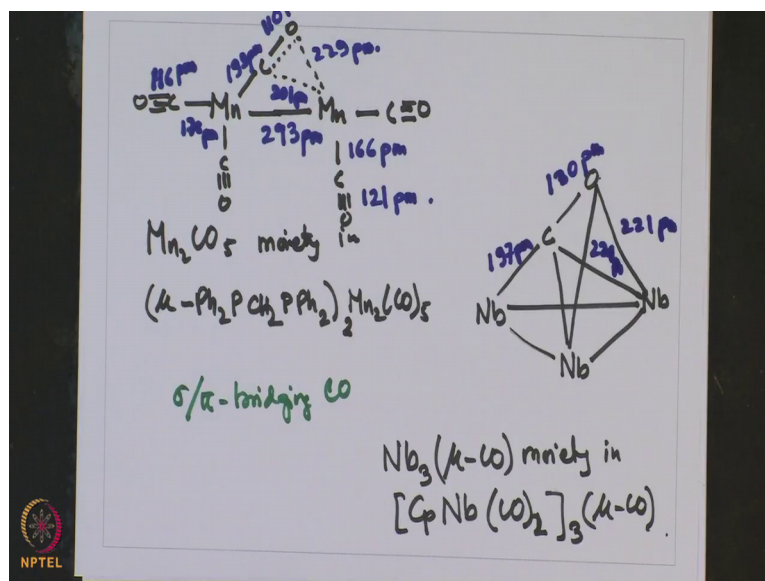 110
O
193pm
C
229pm.
116pm
O≡C—Mn
201p
Mn—C≡O
293pm
C
O
166 pm
C
O
121 pm.
Mn₂CO₅ moiety in
(μ-Ph₂PCH₂PPh₂)₂Mn₂(CO)₅
σ/π-bridging CO
130pm
O
C
197pm
221pm
Nb
Nb
Nb
Nb₃(μ-CO) moiety in
[CpNb(CO)₂]₃(μ-CO).
NPTEL